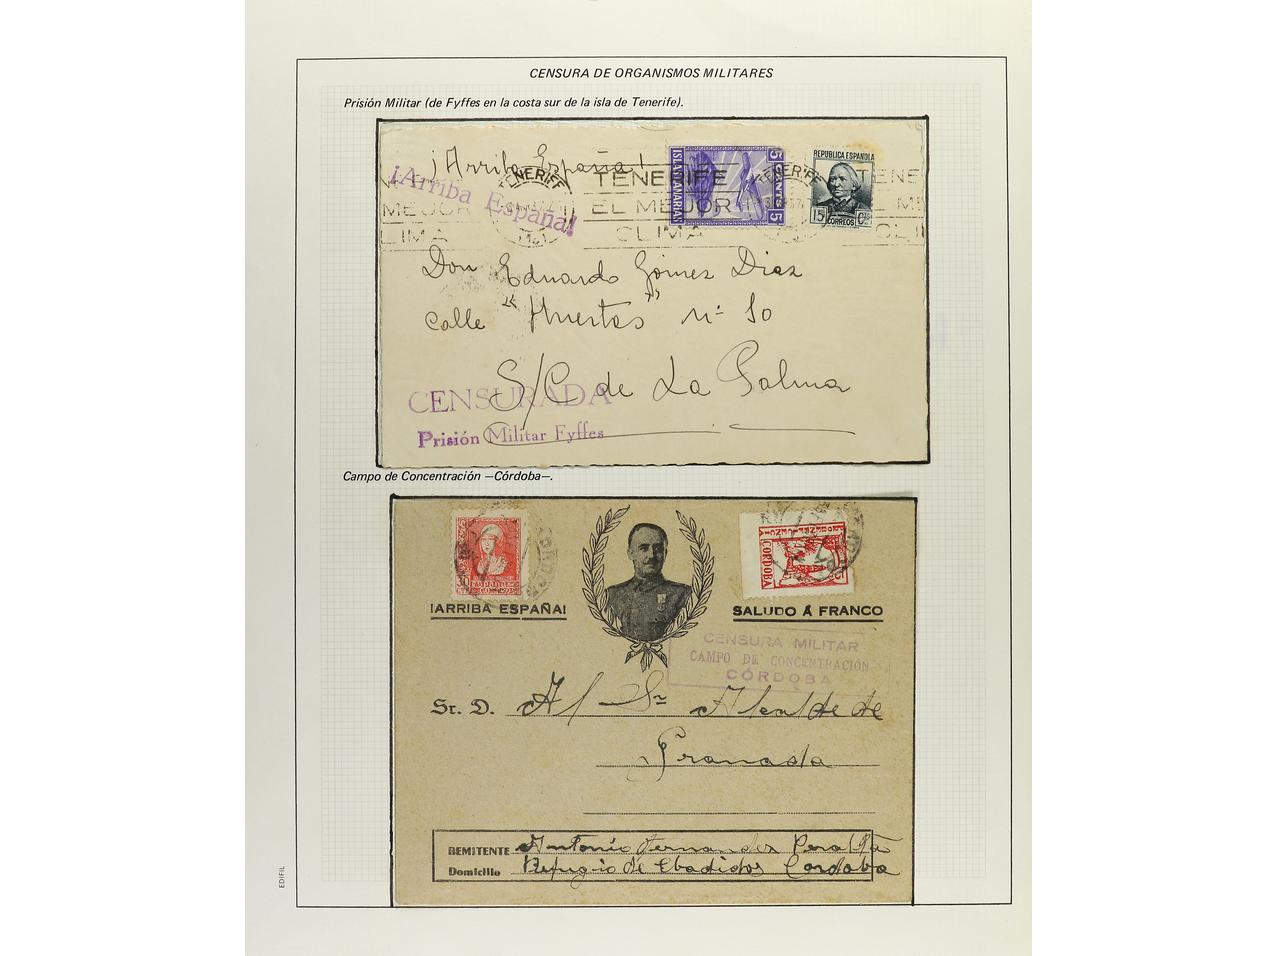 CENSURA DE ORGANISMOS MILITARES
Prisión Militar (de Fyffes en la costa sur de la isla de Tenerife).
¡Arriba España!
¡Arriba España!
TENERIFE
EL MEJOR
CLIMA
TENERIFE
MEJOR
CLIMA
ISLAS CANARIAS
5 CENTS 5
REPUBLICA ESPAÑOLA
15 CTS
CORREOS
TENERIFE
TENE
CLI
Don Eduardo Gómez Diaz
calle "Huertas" nº 10
S/C de La Palma
CENSURADA
Prisión Militar Fyffes
Campo de Concentración —Córdoba—.
30
CORDOBA
5
¡ARRIBA ESPAÑA!
SALUDO Á FRANCO
CENSURA MILITAR
CAMPO DE CONCENTRACIÓN
CÓRDOBA
Sr. D. Al Sr Alcalde de
Granada
REMITENTE Antonio Fernandez Peralta
Domicilio Refugio de Ebadidos Cordoba
EDIFIL